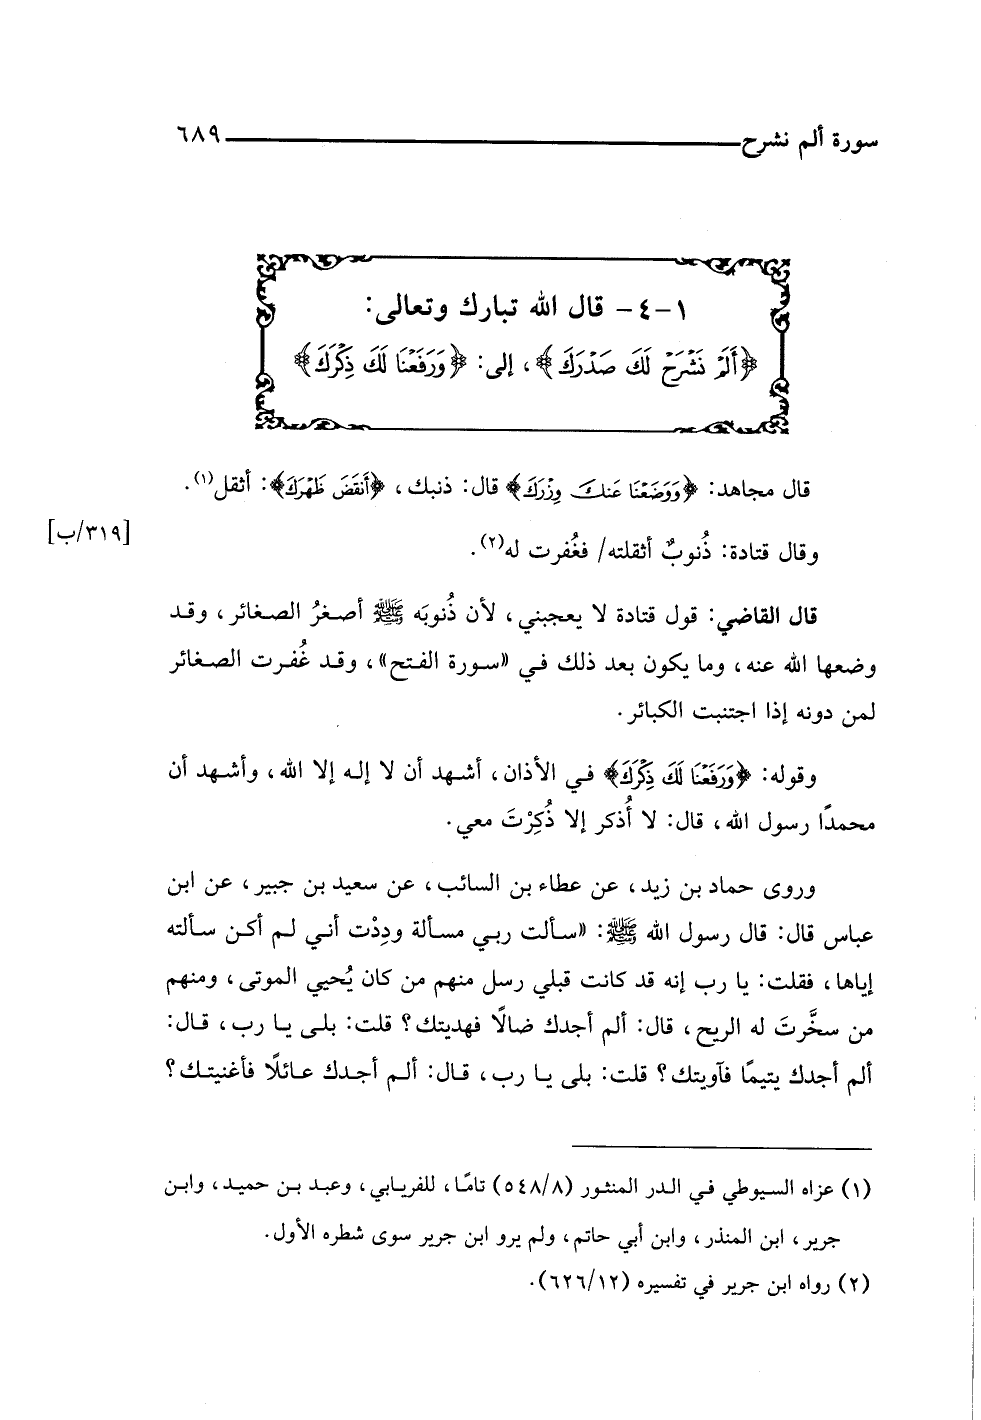 سورة ألم نشرح ٦٨٩
١-٤- قال الله تبارك وتعالى:
﴿أَلَمْ نَشْرَحْ لَكَ صَدْرَكَ﴾، إلى: ﴿وَرَفَعْنَا لَكَ ذِكْرَكَ﴾
قال مجاهد: ﴿وَوَضَعْنَا عَنكَ وِزْرَكَ﴾ قال: ذنبك، ﴿أَنقَضَ ظَهْرَكَ﴾: أثقل(١).
[٣١٩/ب]
وقال قتادة: ذُنوبٌ أثقلته/ فغُفرت له(٢).
قال القاضي: قول قتادة لا يعجبني، لأن ذُنوبَه ﷺ أصغرُ الصغائر، وقد
وضعها الله عنه، وما يكون بعد ذلك في «سورة الفتح»، وقد غُفرت الصغائر
لمن دونه إذا اجتنبت الكبائر.
وقوله: ﴿وَرَفَعْنَا لَكَ ذِكْرَكَ﴾ في الأذان، أشهد أن لا إله إلا الله، وأشهد أن
محمدًا رسول الله، قال: لا أُذكر إلا ذُكِرْتَ معي.
وروى حماد بن زيد، عن عطاء بن السائب، عن سعيد بن جبير، عن ابن
عباس قال: قال رسول الله ﷺ: «سألت ربي مسألة ودِدْت أني لم أكن سألته
إياها، فقلت: يا رب إنه قد كانت قبلي رسل منهم من كان يُحيي الموتى، ومنهم
من سخَّرتَ له الريح، قال: ألم أجدك ضالًا فهديتك؟ قلت: بلى يا رب، قال:
ألم أجدك يتيمًا فآويتك؟ قلت: بلى يا رب، قال: ألم أجدك عائلًا فأغنيتك؟
(١) عزاه السيوطي في الدر المنثور (٥٤٨/٨) تامًا، للفريابي، وعبد بن حميد، وابن
جرير، ابن المنذر، وابن أبي حاتم، ولم يرو ابن جرير سوى شطره الأول.
(٢) رواه ابن جرير في تفسيره (٦٢٦/١٢).